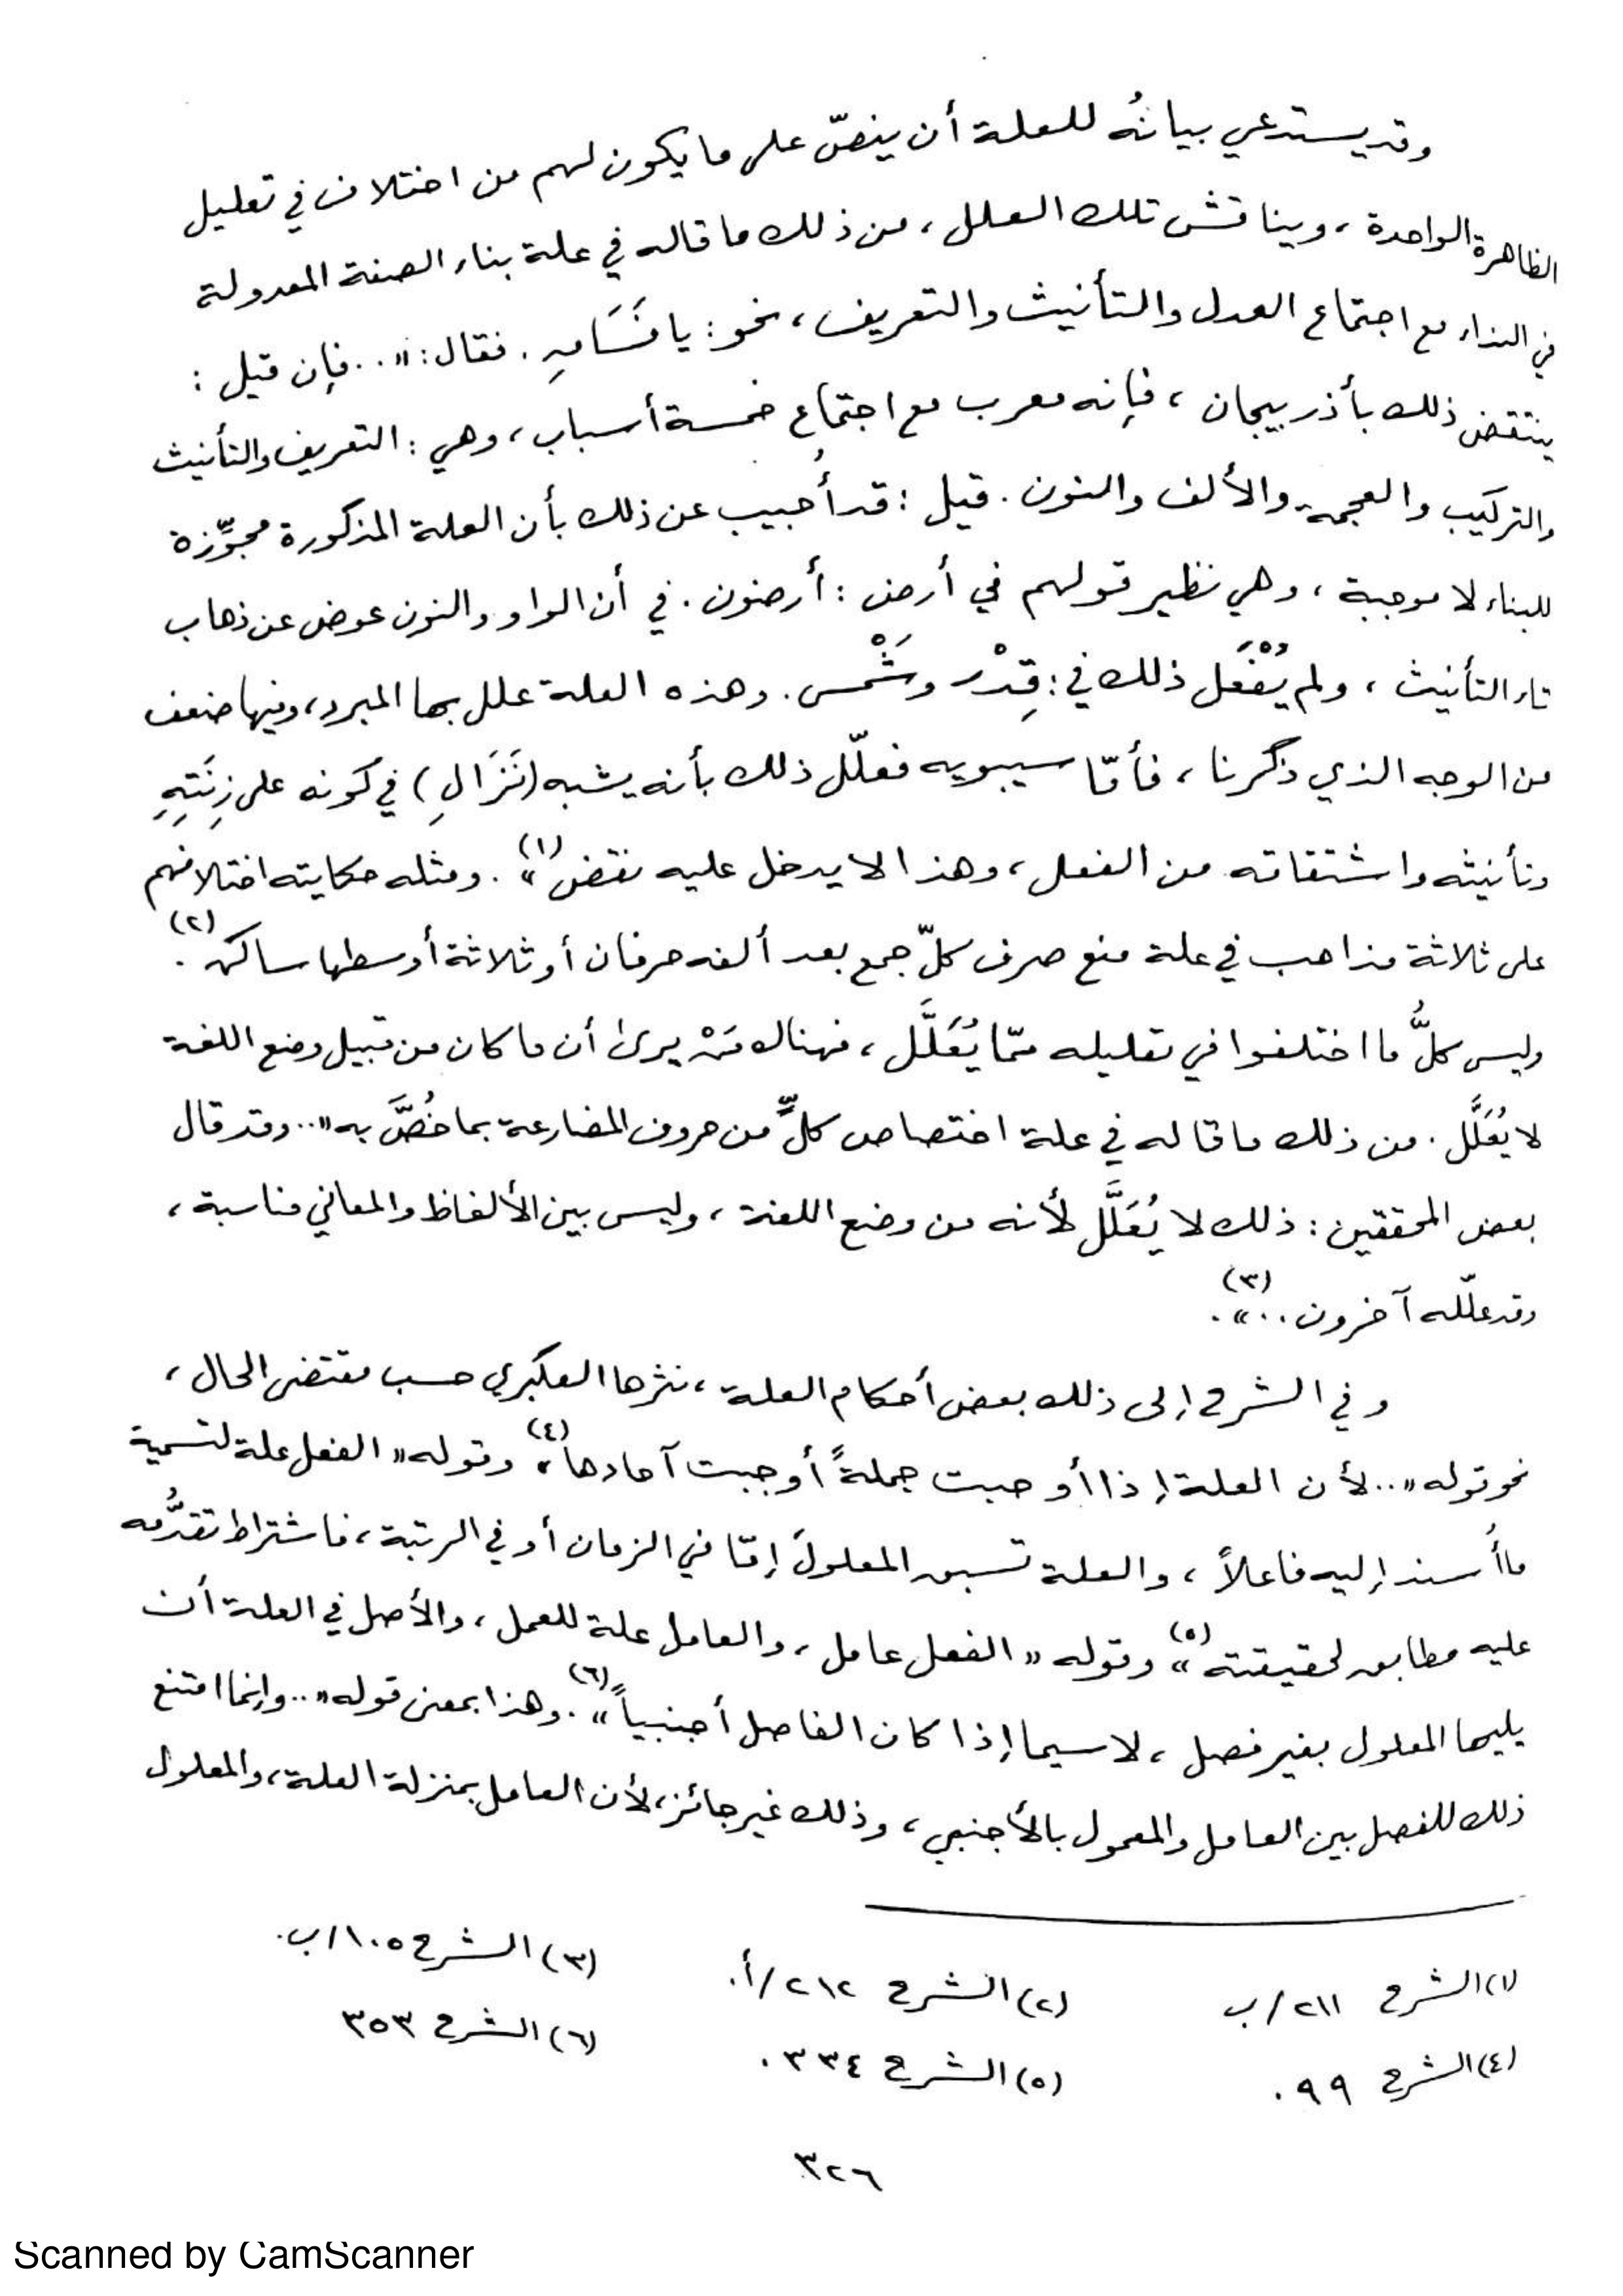 وقد يستدعي بيانُه للعلة أن ينصّ على ما يكون لهم من اختلاف في تعليل
الظاهرة الواحدة ، ويناقش تلك العلل ، من ذلك ما قاله في علة بناء الصفة المعدولة
في النداء مع اجتماع العدل والتأنيث والتعريف ، نحو : يا فَسَاقِ . فقال : «.. فإن قيل :
ينتقض ذلك بأذربيجان ، فإنه معرب مع اجتماع خمسة أسباب ، وهي : التعريف والتأنيث
والتركيب والعجمة والألف والنون . قيل : قد أُجيب عن ذلك بأن العلة المذكورة مجوِّزة
للبناء لا موجبة ، وهي نظير قولهم في أرض : أرضون . في أن الواو والنون عوض عن ذهاب
تاء التأنيث ، ولم يُفْعَل ذلك في : قِدْر وشَمْس . وهذه العلة علل بها المبرد ، وفيها ضعف
من الوجه الذي ذكرنا ، فأمّا سيبويه فعلّل ذلك بأنه يشبه (نَزَالِ) في كونه على زِنَتِهِ
وتأنيثه واشتقاقه من الفعل ، وهذا لا يدخل عليه نقض»(١) . ومثله حكايته اختلافهم
على ثلاثة مذاهب في علة منع صرف كلّ جمع بعد ألفه حرفان أو ثلاثة أوسطها ساكن(٢) .
وليس كلُّ ما اختلفوا في تعليله ممّا يُعَلَّل ، فهناك مَنْ يرى أن ما كان من قبيل وضع اللغة
لا يُعَلَّل . من ذلك ما قاله في علة اختصاص كلٍّ من حروف المضارعة بما خُصَّ به «.. وقد قال
بعض المحققين : ذلك لا يُعَلَّل لأنه من وضع اللغة ، وليس بين الألفاظ والمعاني مناسبة ،
وقد علّله آخرون ..»(٣) .
وفي الشرح إلى ذلك بعض أحكام العلة ، نثرها العكبري حسب مقتضى الحال ،
نحو قوله «.. لأن العلة إذا أوجبت جملةً أوجبت آحادها»(٤) وقوله « الفعل علة لتسمية
ما أُسند إليه فاعلاً ، والعلة تسبق المعلولَ إمّا في الزمان أو في الرتبة ، فاشتراط تقدُّمه
عليه مطابق لحقيقته»(٥) وقوله « الفعل عامل ، والعامل علة للعمل ، والأصل في العلة أن
يليها المعلول بغير فصل ، لا سيما إذا كان الفاصل أجنبياً»(٦) . وهذا بمعنى قوله «.. وإنما امتنع
ذلك للفصل بين العامل والمعمول بالأجنبي ، وذلك غير جائز ، لأن العامل بمنزلة العلة ، والمعلول
(١) الشرح ٢١١/ب
(٢) الشرح ٢١٢/أ.
(٣) الشرح ١٠٥/ب.
(٤) الشرح ٩٩ .
(٥) الشرح ٣٣٤ .
(٦) الشرح ٣٥٣
٣٢٦
Scanned by CamScanner